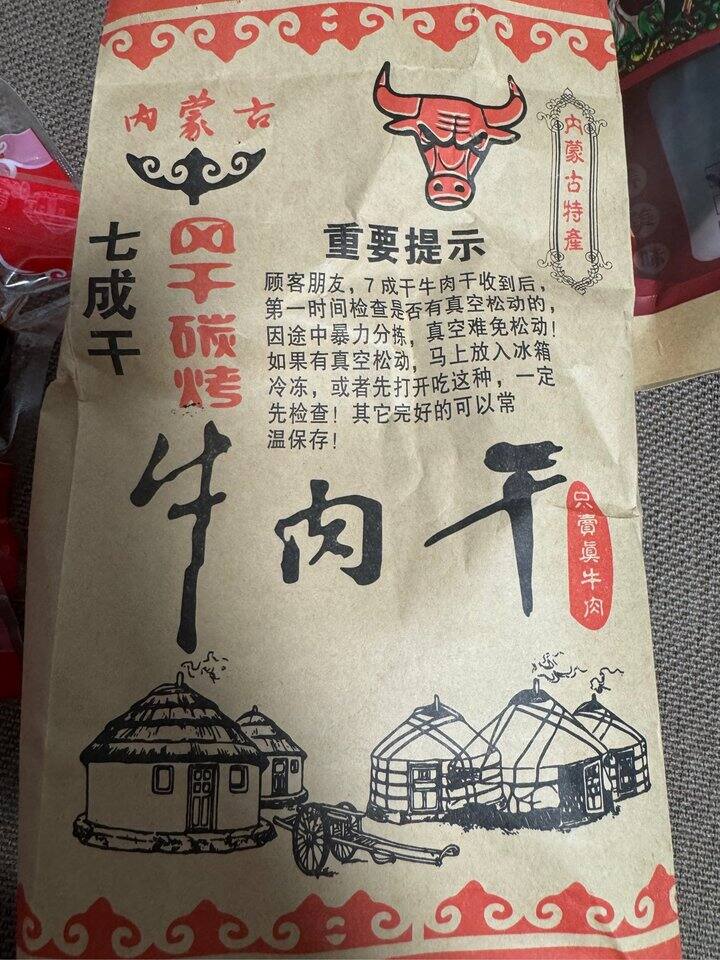 内蒙古
七成干
风干碳烤
内蒙古特產
重要提示
顾客朋友，7成干牛肉干收到后，
第一时间检查是否有真空松动的，
因途中暴力分拣，真空难免松动！
如果有真空松动，马上放入冰箱
冷冻，或者先打开吃这种，一定
先检查！其它完好的可以常
温保存！
牛肉干
只賣真牛肉